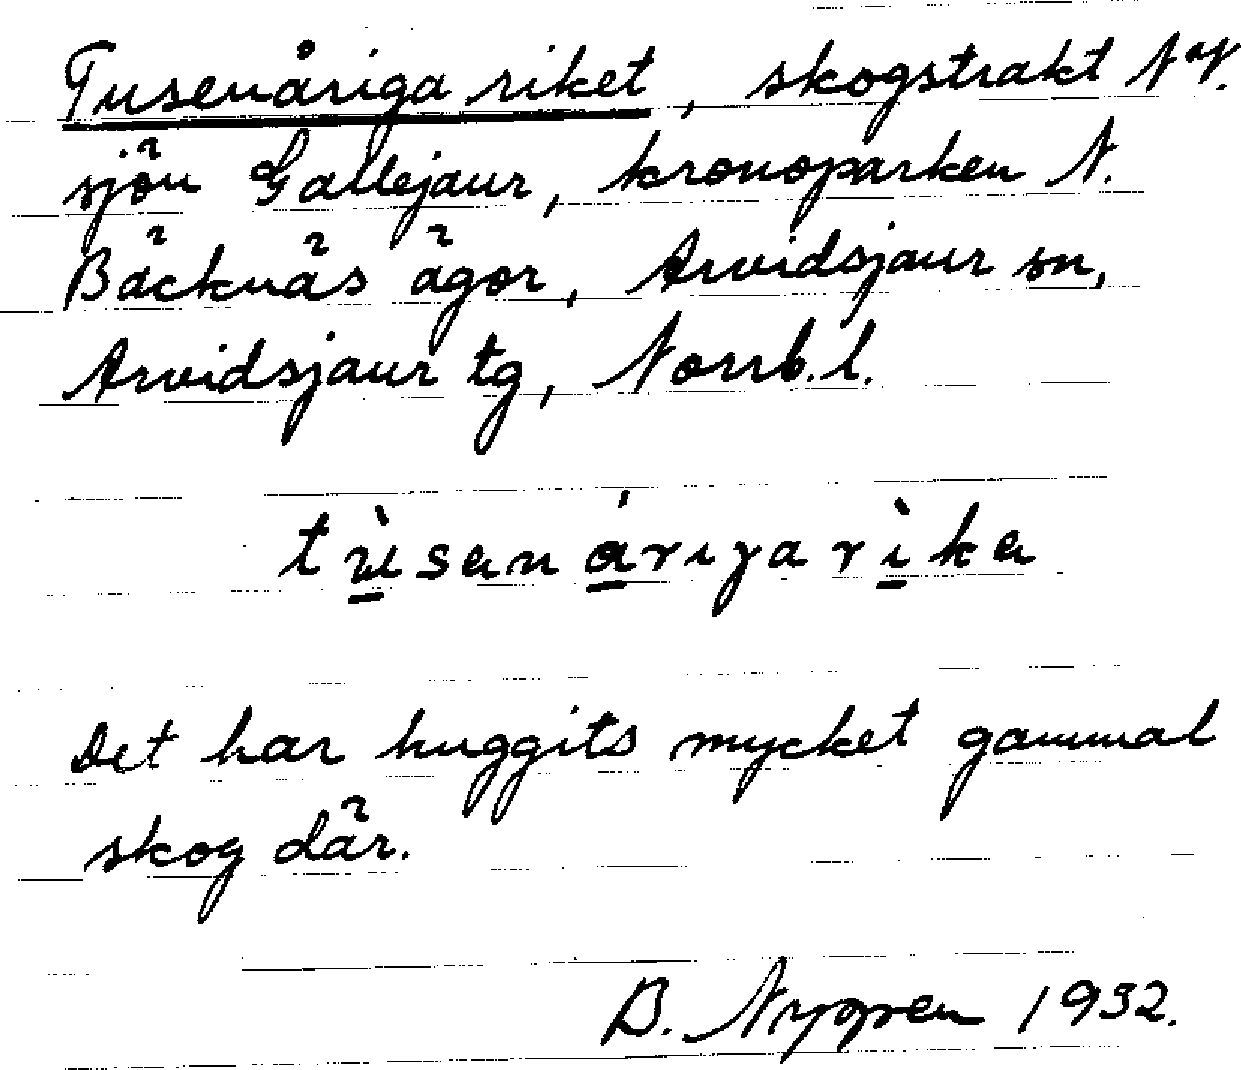 Tusenåriga riket, skogstrakt NV.
sjön Gallejaur, kronoparken N.
Bäcknäs ägor, Arvidsjaur sn,
Arvidsjaur tg, Norrb. l.
tùsenárigarìke
Det har huggits mycket gammal
skog där.
B. Nygren 1932.